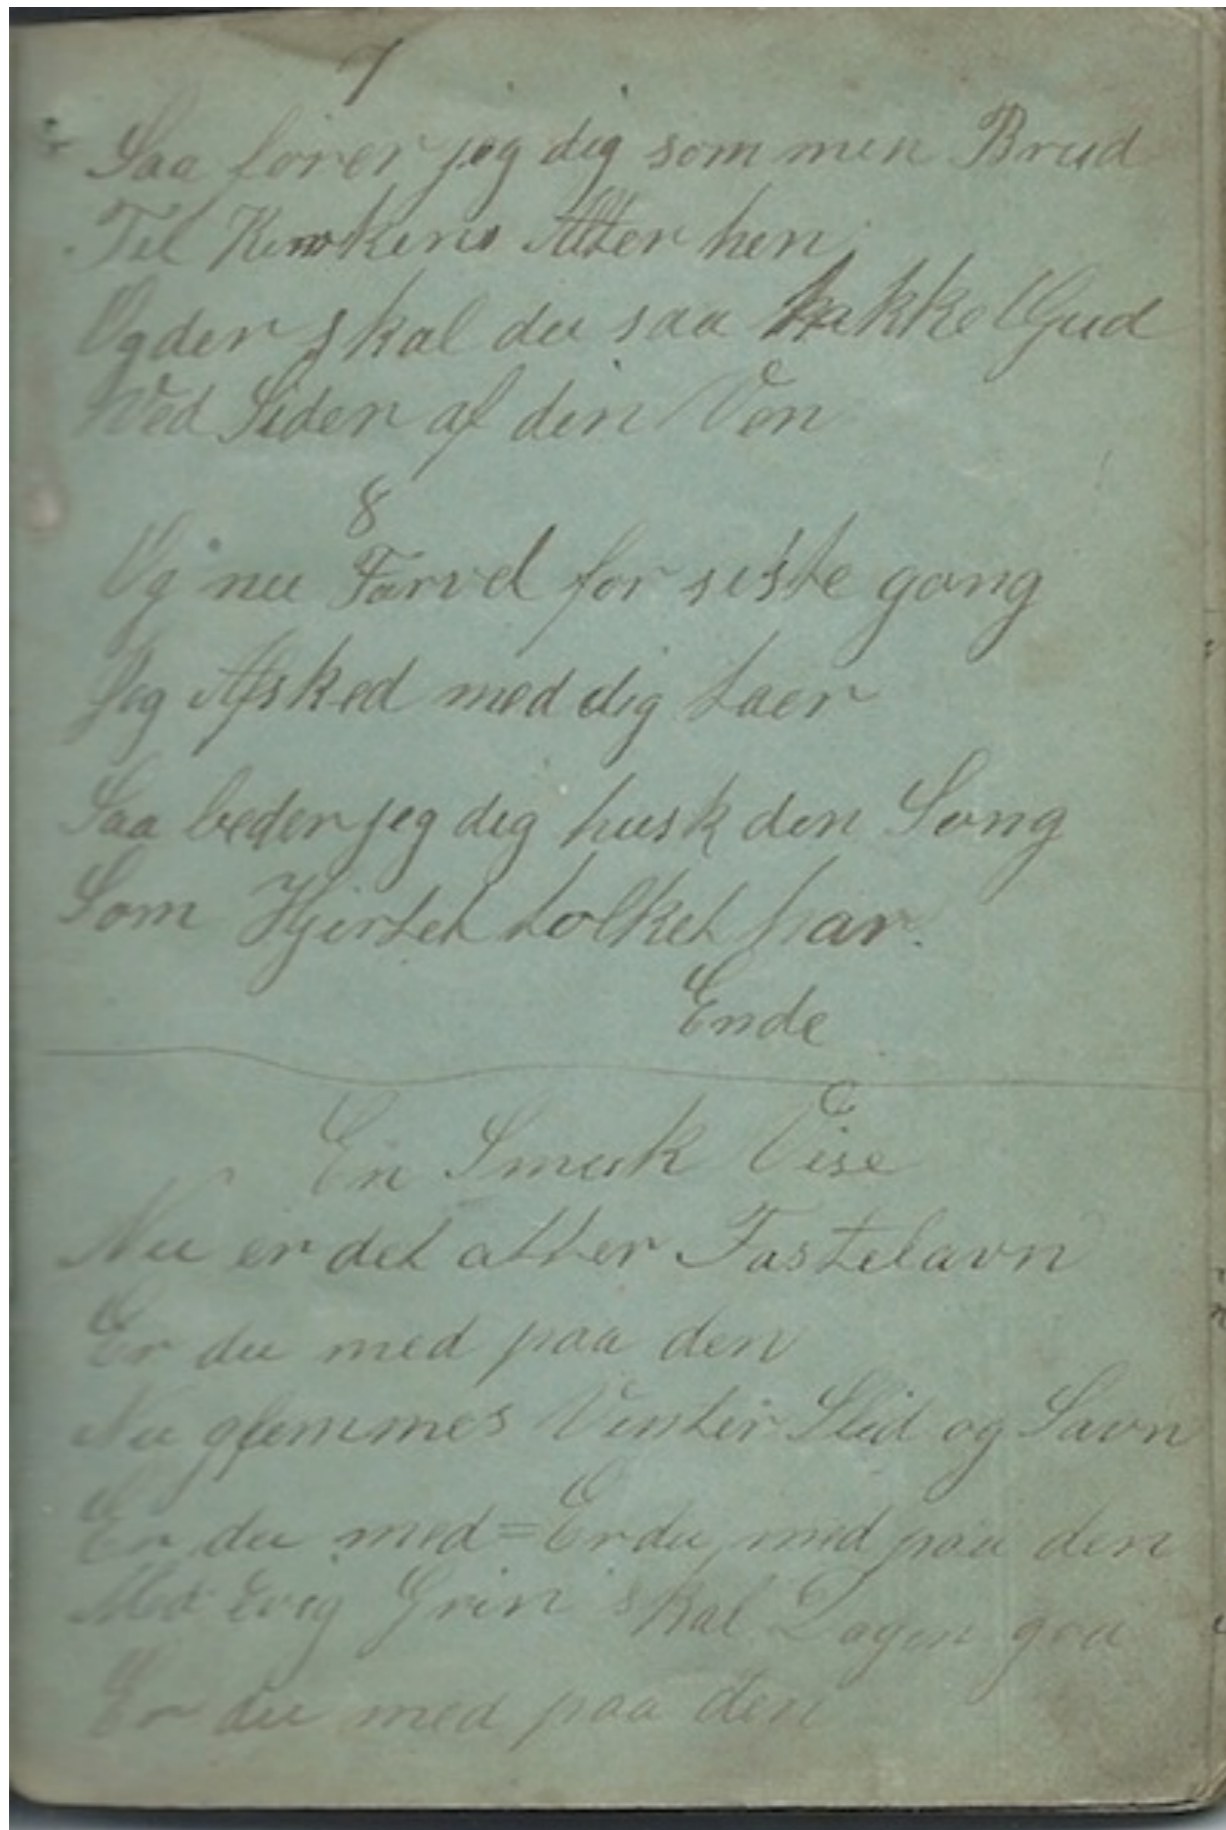 7
Saa fører jeg dig som min Brud
Til Kirkens Alter hen
Og der skal du saa takke Gud
Ved Siden af din Ven
8
Og nu Farvel for siste gang
Jeg Afsked med dig taer
Saa beder jeg dig husk den Sang
Som Hjertet tolket har.
Ende
En Smuk Vise
Nu er det atter Fastelavn
Er du med paa den
Nu glemmes Vinter Slid og Savn
Er du med = Er du med paa den
Med evig Grin skal Dagen gaa
Er du med paa den